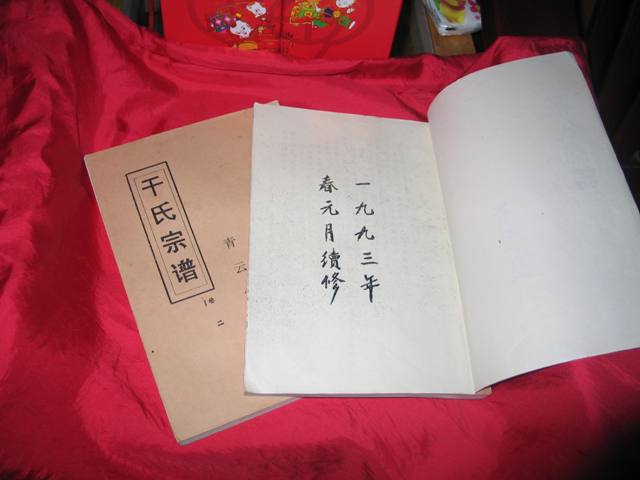 干氏宗谱
青云
二
一九九三年
春元月續修